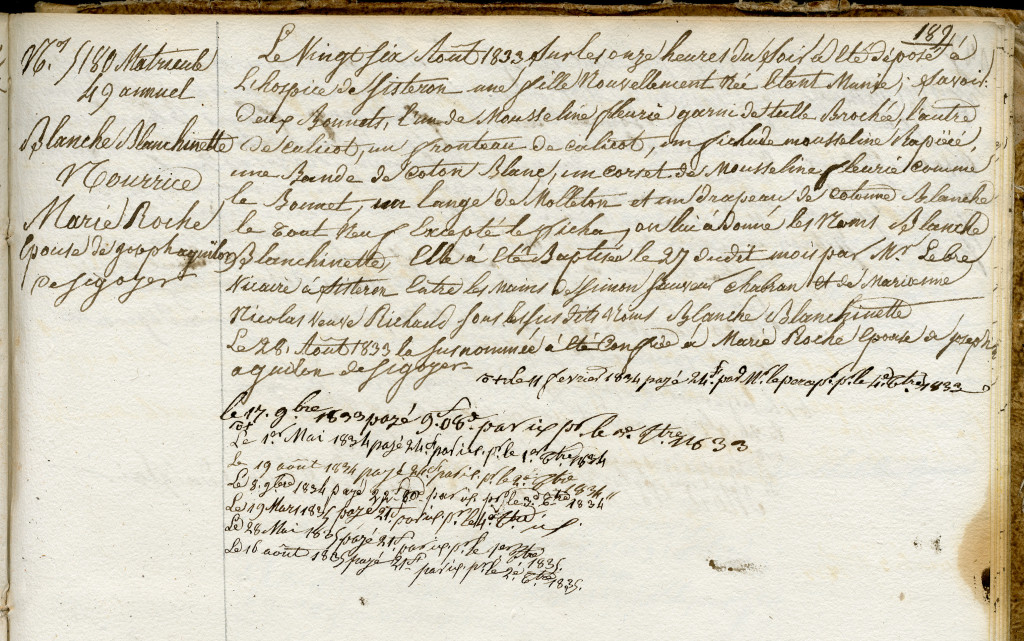 189
N.os 180 Matricule
49 annuel
Blanche Blanchinette
Nourrice
Marie Roche
Epouse de joseph aguillon
de Sigoyer
Le Vingt six Août 1833 sur les onze heures du soir a été déposé à
L'hospice de Sisteron une fille Nouvellement Née Etant Munie; Savoir:
Deux Bonnets, l'un de Mousseline fleurie garni de tulle Broché, l'autre
De calicot, un fronteau de calicot, un fichu de mousseline
une Bande de Coton Blanc, un corset de Mousseline fleurie comme
le Bonnet, un lange de Molleton et un drapeau de cotonne Blanche
le tout Neuf Excepté le fichu, on lui a Donné les Noms Blanche
Blanchinette, Elle à été Baptisée le 27 dudit mois par Mr. Lebre
Vicaire à Sisteron Entre les mains de Simon Sauveur Chabran et de Marianne
Nicolas veuve Richaud sous les susdits Noms Blanche Blanchinette
Le 28 Août 1833 la susnommée à été Confiée à Marie Roche Epouse de joseph
aguilon de Sigoyer
le 11 fevrier 1834 payé 24f. par Mr. le p. le 4e. tre 1833
le 17. 9bre 1833 payé 9f. 08c. par pr. le 3e. tre 1833
Le 1er Mai 1834 payé 24f. par pr. le 1er tre 1834
Le 19 août 1834 payé 24f. par pr. le 2e. tre 1834
Le 8. 9bre 1834 payé 22f. 80c par pr. le 3e tre 1834
Le 19 Mars 1835 payé 21f. par pr. le 4e tre
Le 28 Mai 1835 payé 21f. par pr. le 1er tre 1835.
Le 16 août 1835 payé 21f. par pr. le 2e. tre 1835.